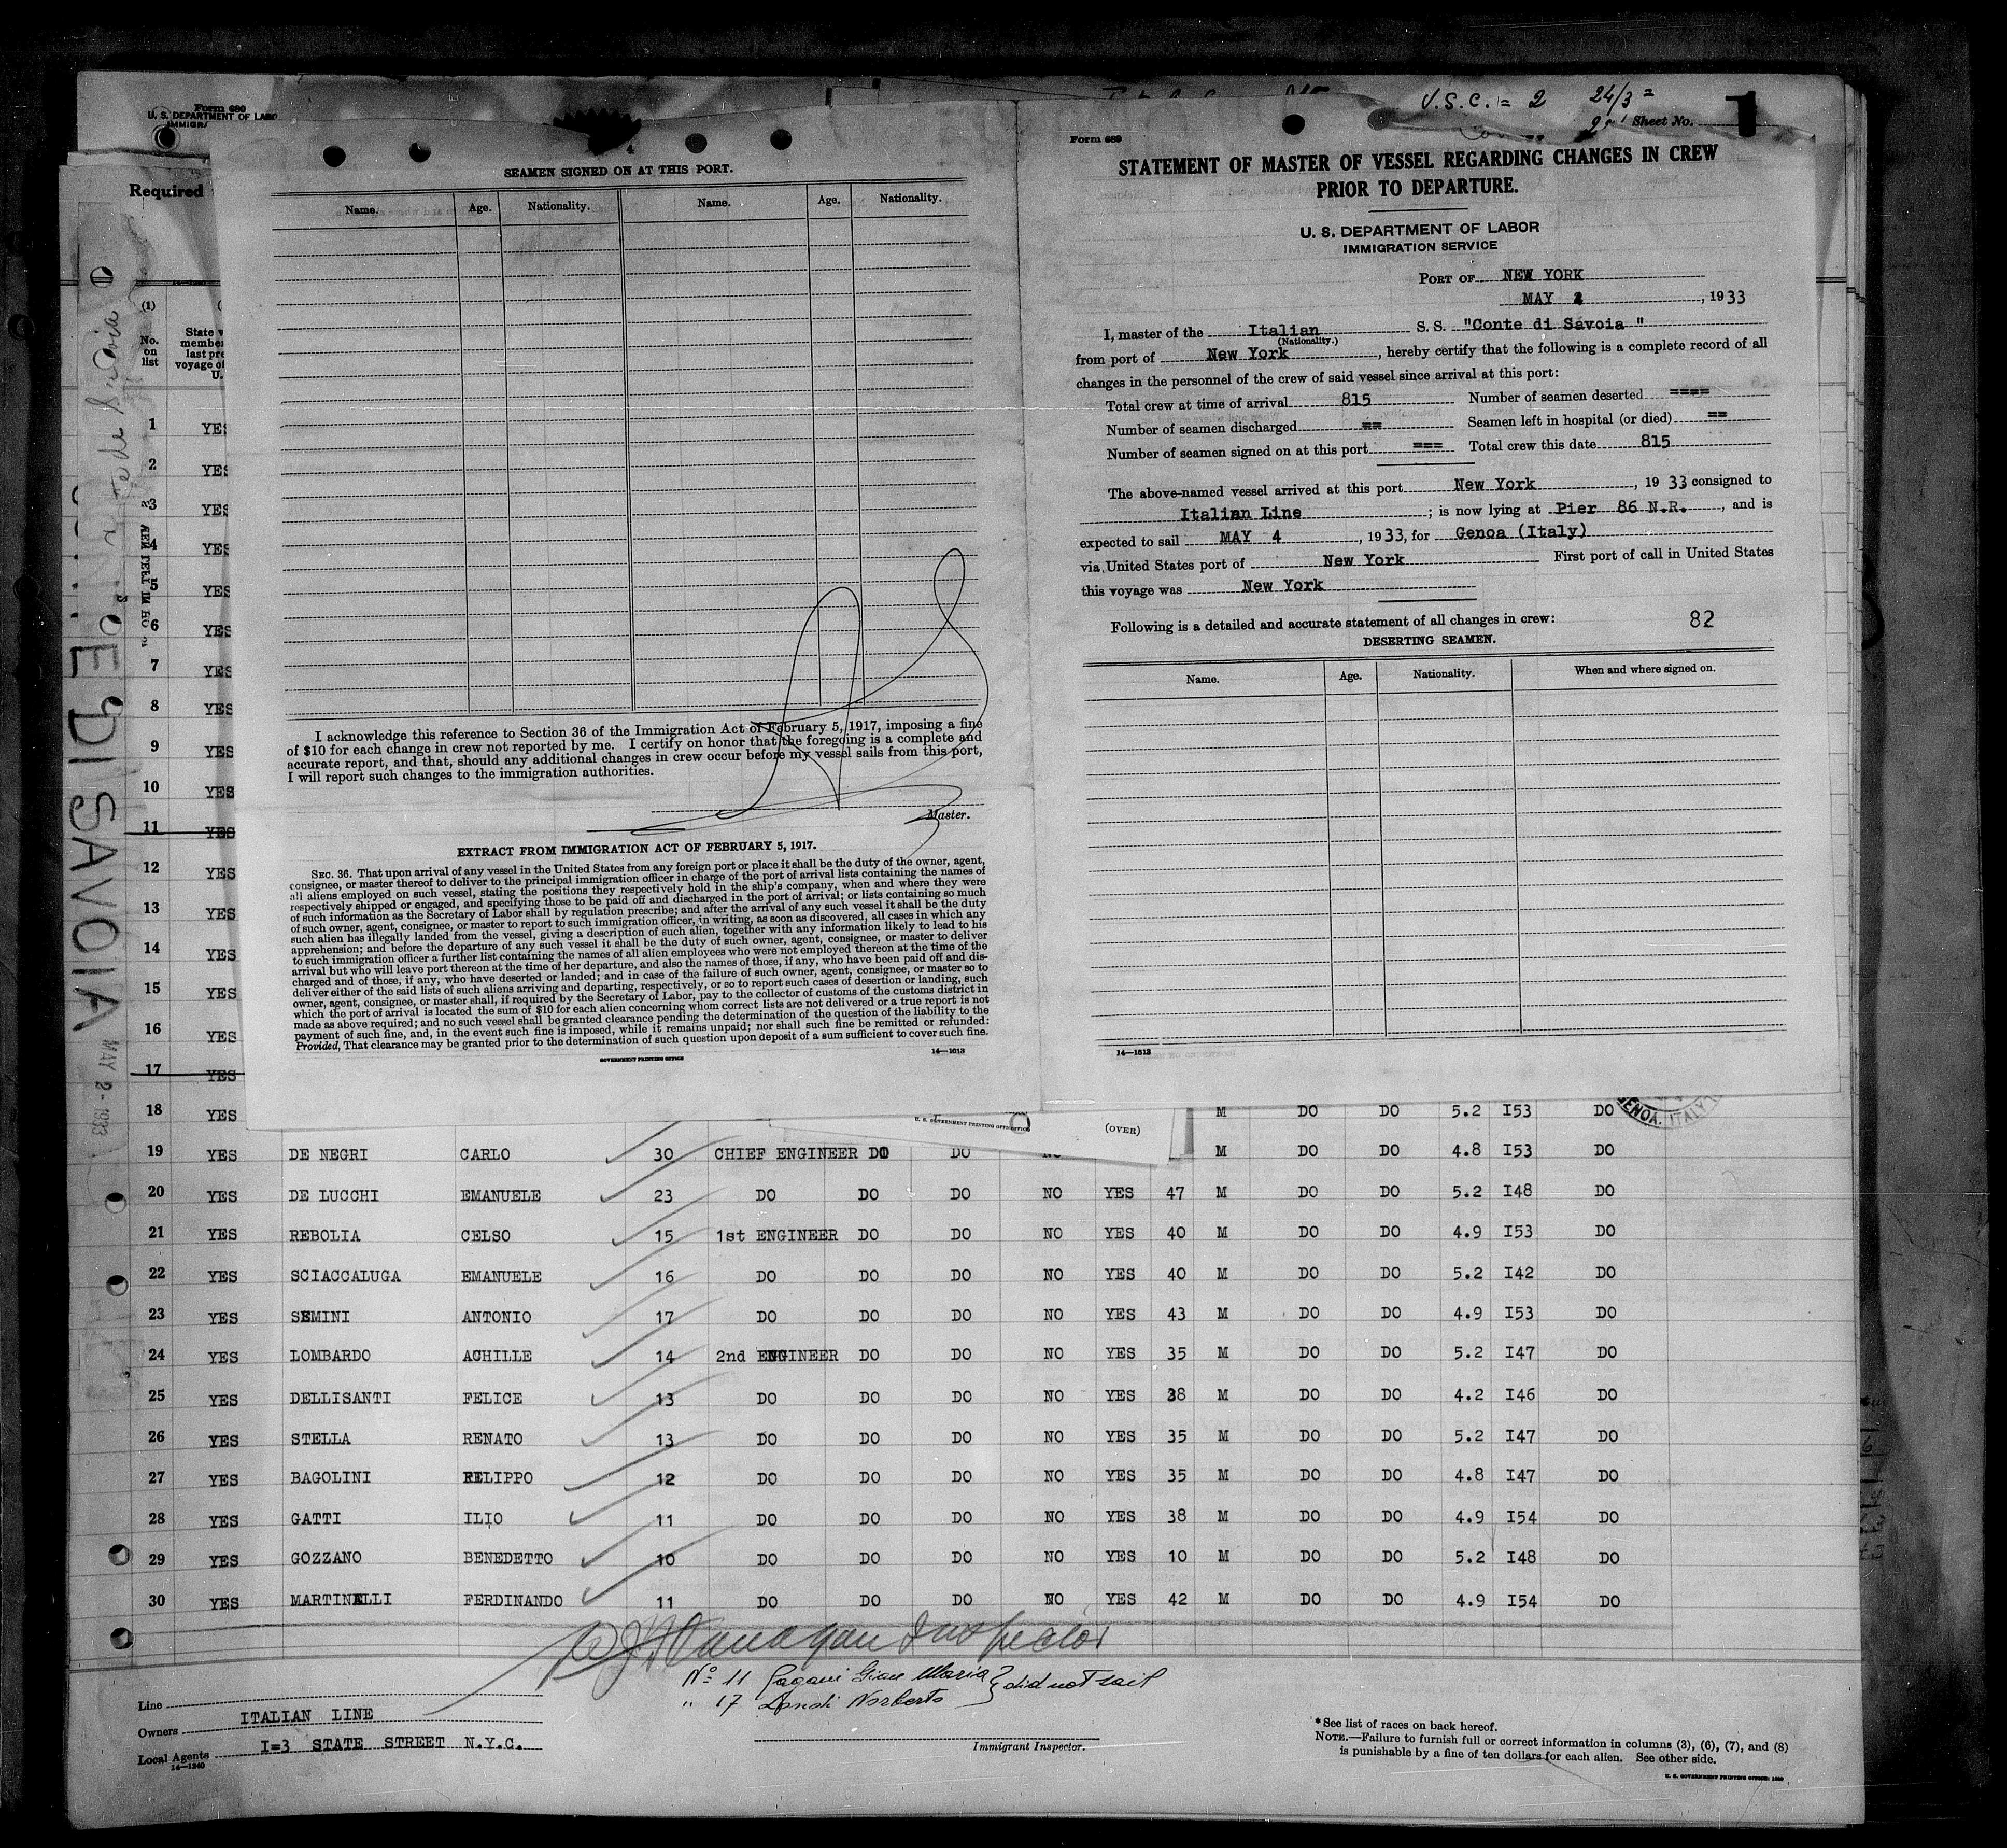 Form 680
U. S. DEPARTMENT OF LABO
IMMIGRA
Required
(1)
No.
on
list
State w
member
last pre
voyage of
U.
CONTE DI SAVOIA
MAY 2 - 1933
1 YES
2 YES
3 YES
4 YES
5 YES
6 YES
7 YES
8 YES
9 YES
10 YES
11 YES
12 YES
13 YES
14 YES
15 YES
16 YES
17 YES
SEAMEN SIGNED ON AT THIS PORT.
Name. Age. Nationality. Name. Age. Nationality.
I acknowledge this reference to Section 36 of the Immigration Act of February 5, 1917, imposing a fine
of $10 for each change in crew not reported by me. I certify on honor that the foregoing is a complete and
accurate report, and that, should any additional changes in crew occur before my vessel sails from this port,
I will report such changes to the immigration authorities.
Master.
EXTRACT FROM IMMIGRATION ACT OF FEBRUARY 5, 1917.
SEC. 36. That upon arrival of any vessel in the United States from any foreign port or place it shall be the duty of the owner, agent,
consignee, or master thereof to deliver to the principal immigration officer in charge of the port of arrival lists containing the names of
all aliens employed on such vessel, stating the positions they respectively hold in the ship's company, when and where they were
respectively shipped or engaged, and specifying those to be paid off and discharged in the port of arrival; or lists containing so much
of such information as the Secretary of Labor shall by regulation prescribe; and after the arrival of any such vessel it shall be the duty
of such owner, agent, consignee, or master to report to such immigration officer, in writing, as soon as discovered, all cases in which any
such alien has illegally landed from the vessel, giving a description of such alien, together with any information likely to lead to his
apprehension; and before the departure of any such vessel it shall be the duty of such owner, agent, consignee, or master to deliver
to such immigration officer a further list containing the names of all alien employees who were not employed thereon at the time of the
arrival but who will leave port thereon at the time of her departure, and also the names of those, if any, who have been paid off and dis-
charged and of those, if any, who have deserted or landed; and in case of the failure of such owner, agent, consignee, or master so to
deliver either of the said lists of such aliens arriving and departing, respectively, or so to report such cases of desertion or landing, such
owner, agent, consignee, or master shall, if required by the Secretary of Labor, pay to the collector of customs of the customs district in
which the port of arrival is located the sum of $10 for each alien concerning whom correct lists are not delivered or a true report is not
made as above required; and no such vessel shall be granted clearance pending the determination of the question of the liability to the
payment of such fine, and, in the event such fine is imposed, while it remains unpaid; nor shall such fine be remitted or refunded:
Provided, That clearance may be granted prior to the determination of such question upon deposit of a sum sufficient to cover such fine.
GOVERNMENT PRINTING OFFICE 14—1613
U.S.C. = 2 24/3 =
Sheet No. 1
Form 689
STATEMENT OF MASTER OF VESSEL REGARDING CHANGES IN CREW
PRIOR TO DEPARTURE.
U. S. DEPARTMENT OF LABOR
IMMIGRATION SERVICE
PORT OF NEW YORK
MAY 2, 1933
I, master of the Italian S. S. "Conte di Savoia "
(Nationality.)
from port of New York, hereby certify that the following is a complete record of all
changes in the personnel of the crew of said vessel since arrival at this port:
Total crew at time of arrival 815 Number of seamen deserted ====
Number of seamen discharged == Seamen left in hospital (or died) ==
Number of seamen signed on at this port === Total crew this date 815
The above-named vessel arrived at this port New York, 1933 consigned to
Italian Line; is now lying at Pier 86 N.R., and is
expected to sail MAY 4, 1933, for Genoa (Italy)
via United States port of New York First port of call in United States
this voyage was New York
Following is a detailed and accurate statement of all changes in crew: 82
DESERTING SEAMEN.
Name. Age. Nationality. When and where signed on.
14—1613
U. S. GOVERNMENT PRINTING OFFICE (OVER)
GENOA. ITALY
18 YES M DO DO 5.2 I53 DO
19 YES DE NEGRI CARLO 30 CHIEF ENGINEER DO DO NO M DO DO 4.8 I53 DO
20 YES DE LUCCHI EMANUELE 23 DO DO DO NO YES 47 M DO DO 5.2 I48 DO
21 YES REBOLIA CELSO 15 1st ENGINEER DO DO NO YES 40 M DO DO 4.9 I53 DO
22 YES SCIACCALUGA EMANUELE 16 DO DO DO NO YES 40 M DO DO 5.2 I42 DO
23 YES SEMINI ANTONIO 17 DO DO DO NO YES 43 M DO DO 4.9 I53 DO
24 YES LOMBARDO ACHILLE 14 2nd ENGINEER DO DO NO YES 35 M DO DO 5.2 I47 DO
25 YES DELLISANTI FELICE 13 DO DO DO NO YES 38 M DO DO 4.2 I46 DO
26 YES STELLA RENATO 13 DO DO DO NO YES 35 M DO DO 5.2 I47 DO
27 YES BAGOLINI FELIPPO 12 DO DO DO NO YES 35 M DO DO 4.8 I47 DO
28 YES GATTI ILIO 11 DO DO DO NO YES 38 M DO DO 4.9 I54 DO
29 YES GOZZANO BENEDETTO 10 DO DO DO NO YES 10 M DO DO 5.2 I48 DO
30 YES MARTINELLI FERDINANDO 11 DO DO DO NO YES 42 M DO DO 4.9 I54 DO
Inspector
No 11 Pagani Gian Maria } did not sail
" 17 Landi Norberto
Line
Owners ITALIAN LINE
Local Agents I=3 STATE STREET N.Y.C.
14—1240
Immigrant Inspector.
* See list of races on back hereof.
NOTE.—Failure to furnish full or correct information in columns (3), (6), (7), and (8)
is punishable by a fine of ten dollars for each alien. See other side.
U. S. GOVERNMENT PRINTING OFFICE: